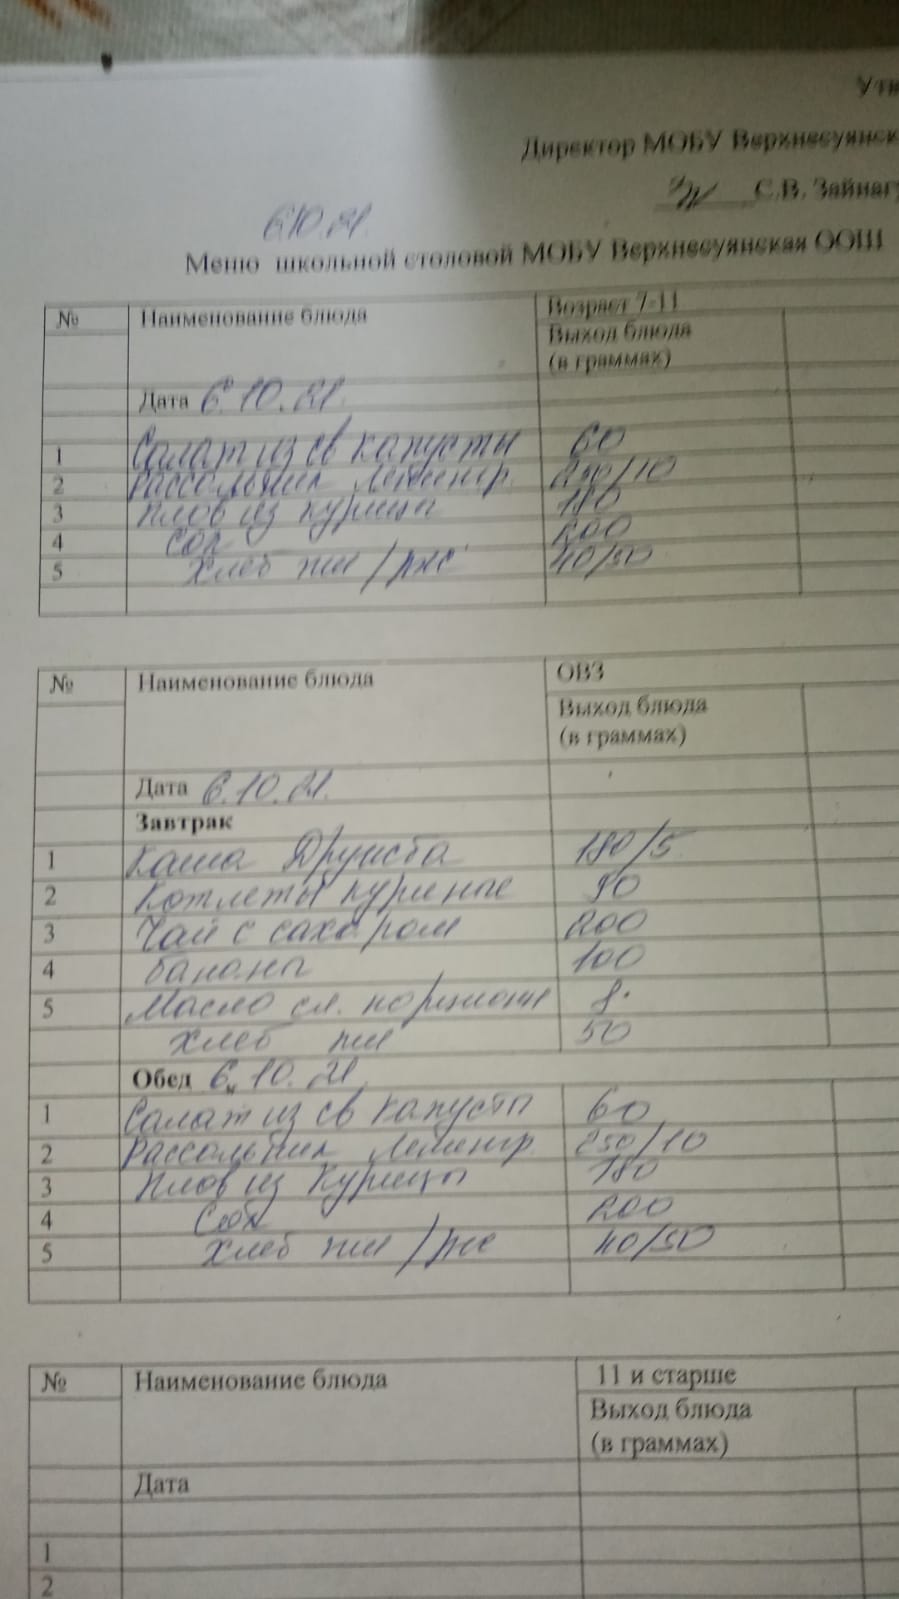 Утв
Директор МОБУ Верхнесуянск
С.В. Зайнагу
6.10.21.
Меню школьной столовой МОБУ Верхнесуянская ООШ
№ Наименование блюда Возраст 7-11
Выход блюда
(в граммах)
Дата 6.10.21.
1 Салат из св капусты 60
2 Рассольник Ленингр. 250/10
3 Плов из курицы 180
4 Сок 200
5 Хлеб пш/рж 40/50
№ Наименование блюда ОВЗ
Выход блюда
(в граммах)
Дата 6.10.21.
Завтрак
1 Каша Дружба 180/5
2 Котлеты куриные 90
3 Чай с сахаром 200
4 бананы 100
5 Масло сл. порционн 8.
Хлеб пш 50
Обед 6.10.21
1 Салат из св капусты 60
2 Рассольник Ленингр. 250/10
3 Плов из Курицы 180
4 Сок 200
5 Хлеб пш/рж 40/50
№ Наименование блюда 11 и старше
Выход блюда
(в граммах)
Дата
1
2